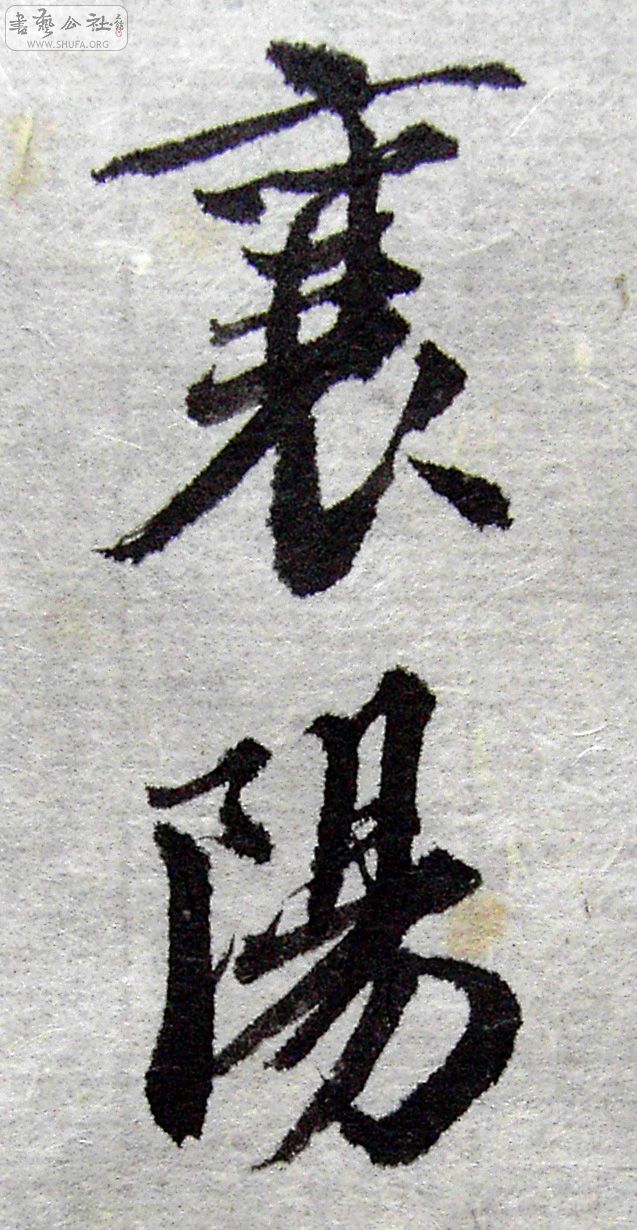 書藝公社
WWW.SHUFA.ORG
襄陽